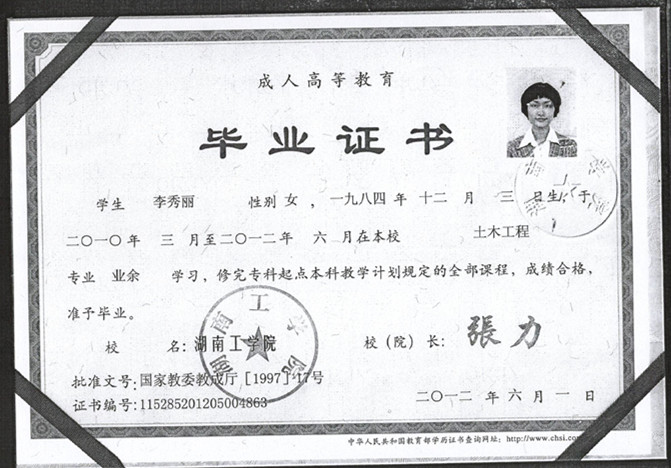 成人高等教育
毕业证书
学生 李秀丽 性别 女 ，一九八四年 十二 月 三 日生，于
二〇一〇年 三 月至二〇一二年 六 月在本校 土木工程
专业 业余 学习，修完专科起点本科教学计划规定的全部课程，成绩合格，
准予毕业。
校 名：湖南工学院
校（院）长： 張力
批准文号：国家教委教成厅［1997］17号
证书编号：115285201205004863
二〇一二年 六 月 一 日
湖南工学院
中华人民共和国教育部学历证书查询网址：http://www.chsi.co